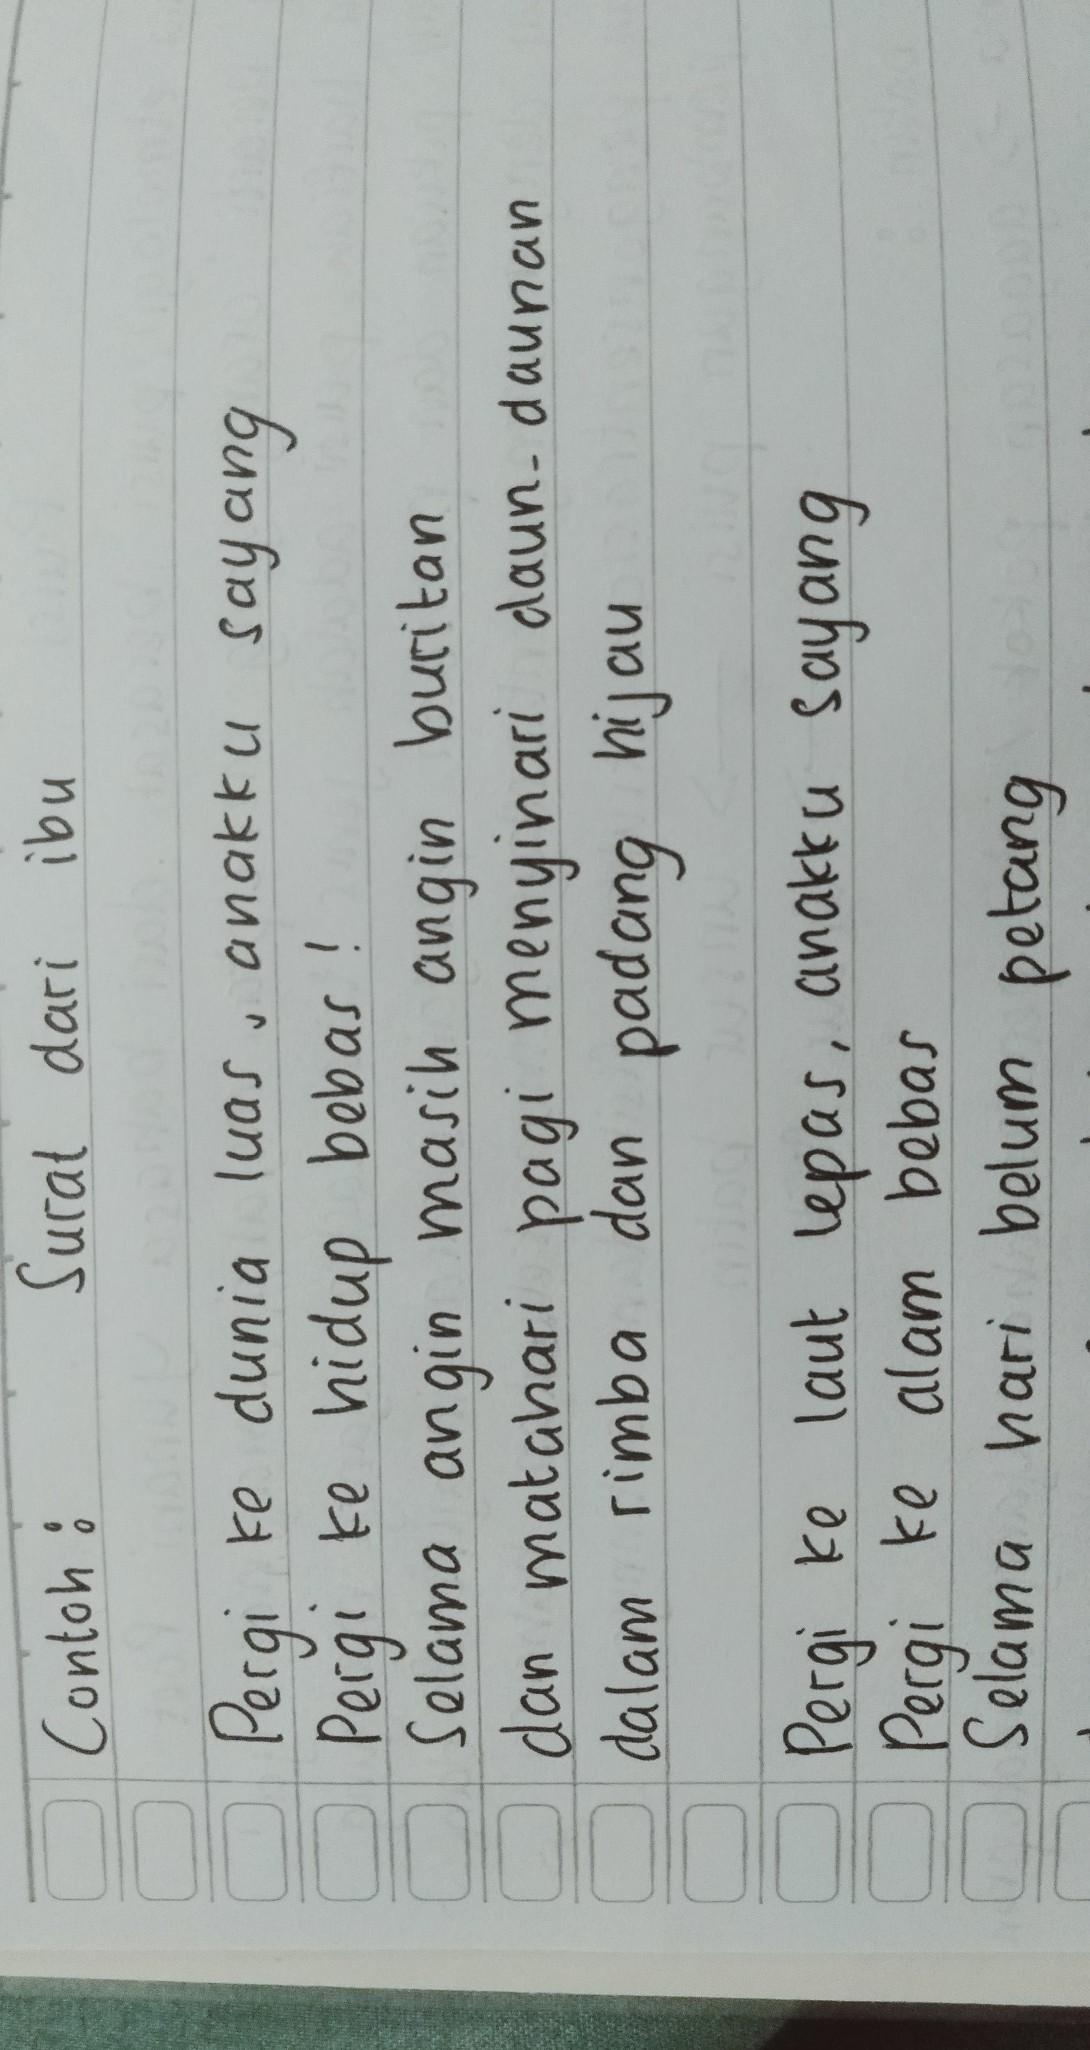 Contoh : Surat dari ibu
Pergi ke dunia luas, anakku sayang
Pergi ke hidup bebas!
Selama angin masih angin buritan
dan matahari pagi menyinari daun-daunan
dalam rimba dan padang hijau
Pergi ke laut lepas, anakku sayang
Pergi ke alam bebas
Selama hari belum petang